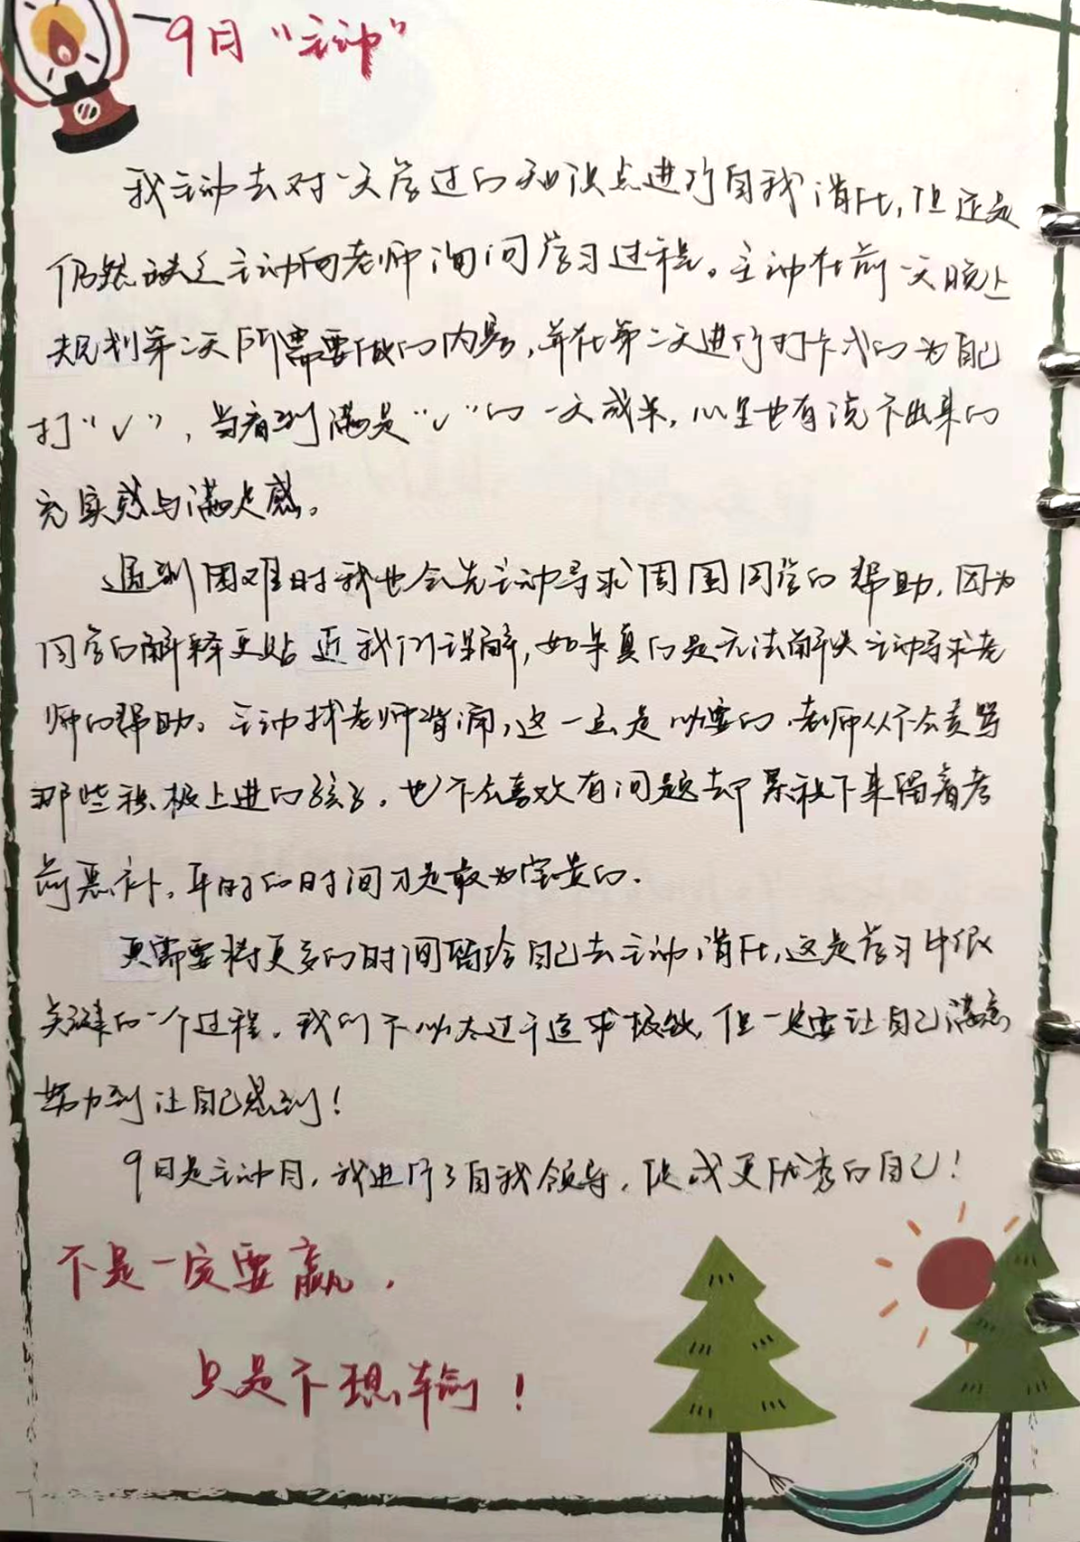 9月“主动”
我主动去对一天学过的知识点进行自我消化,但还是
仍然缺乏主动向老师询问学习过程。主动在前一天晚上
规划第二天所需要做的内容,并在第二天进行打卡式的为自己
打“√”,当看到满是“√”的一天成果,心里也有说不出来的
充实感与满足感。
遇到困难时我也会先主动寻求周围同学的帮助,因为
同学的解释更贴近我们理解,如果真的是无法解决主动寻求老
师的帮助。主动找老师背诵,这一点是必要的,老师从不会责骂
那些积极上进的孩子。也不会喜欢有问题去却累积下来留着考
前恶补,平时的时间才是最为宝贵的.
更需要将更多的时间留给自己去主动消化,这是学习中很
关键的一个过程。我们不必太过于追求极致,但一定要让自己满意
努力到让自己感到!
9月是主动月,我进行了自我领导,促成更优秀的自己!
不是一定要赢,
只是不想输!